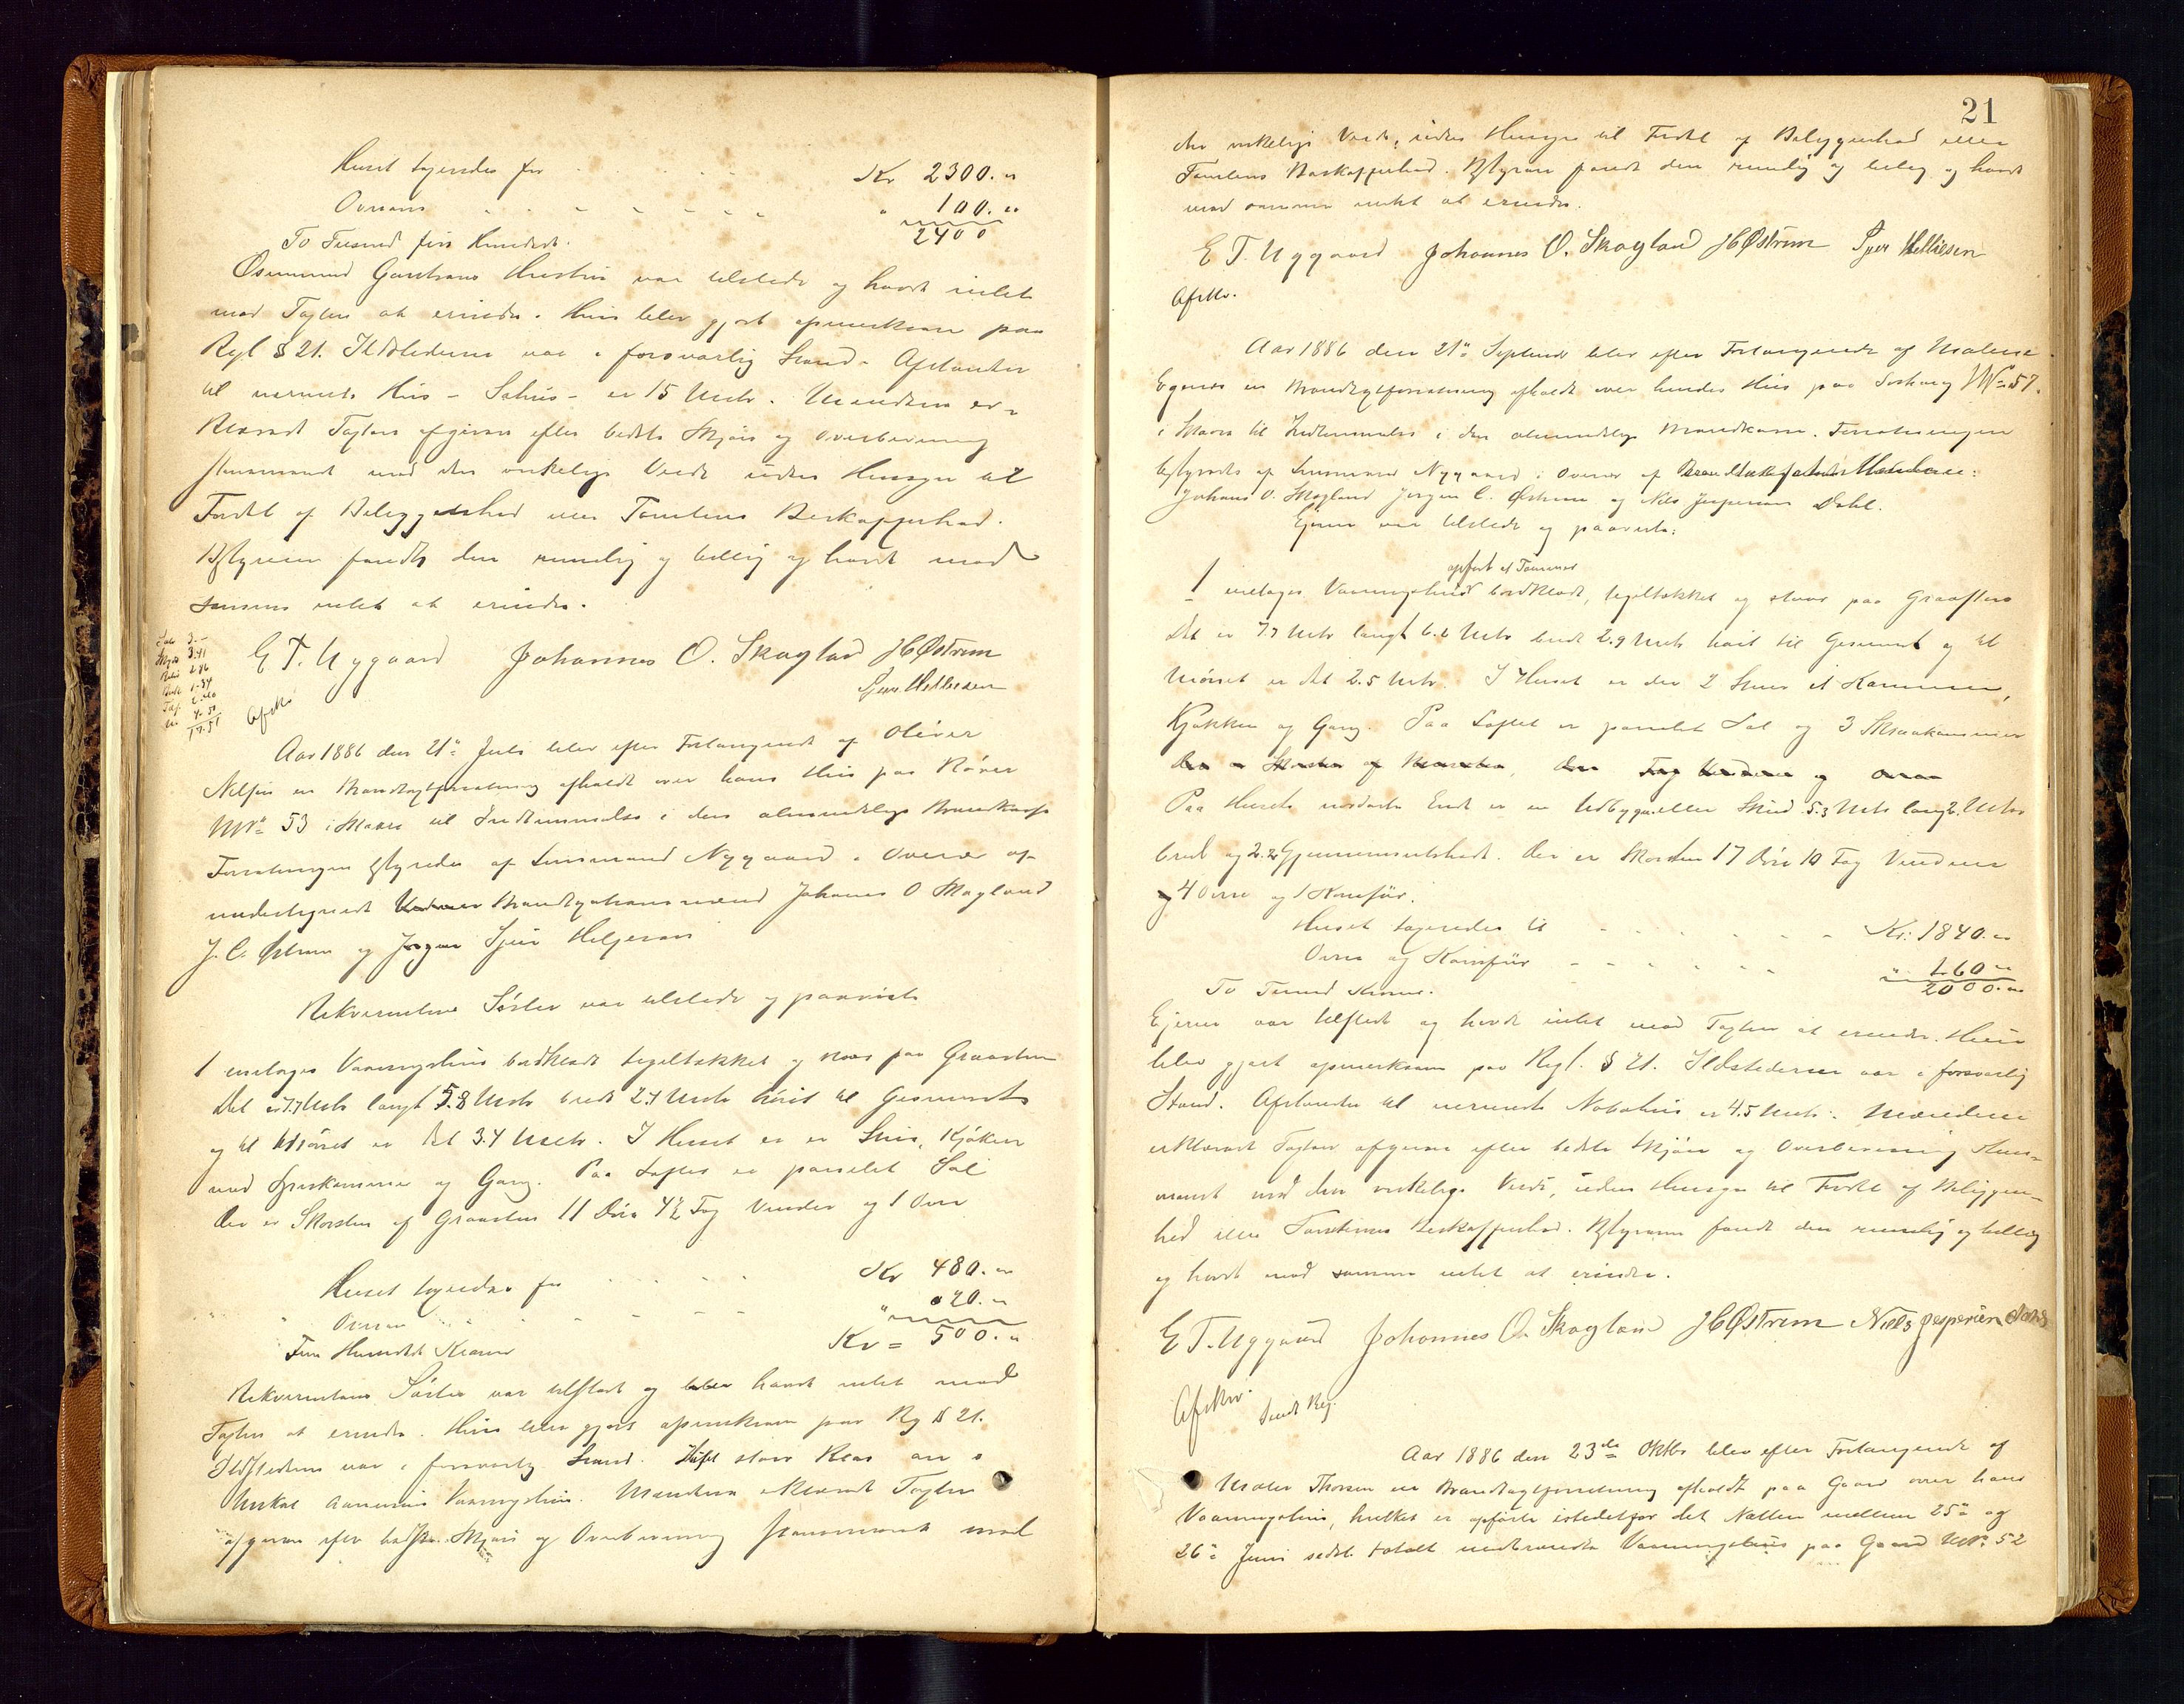 Huset taxeredes for Kr 2300. "
Ovnene " 100. "
2400
To Tusend fire Hundrede.
Osmund Hustru var tilstede og havde intet
mod Taxten at erindre. Hun blev gjort opmerksom paa
Regl § 21. Ildstederne var i forsvarlig Stand. Afstanden
til nermeste Hus - - er 15 Metr. Mændene er-
klærede Taxten afgiven efter bedste Skjøn og Overbevisning
stemmende med den virkelige Værdi uden Hensyn til
Fordel af Beliggenhed eller Tomtens Beskaffenhed.
Bestyreren fandt den rimelig og billig og havde mod
samme intet at erindre.
E T. Nygaard Johannes O. Skogland JCØstrem
Sjur Helliesen
3.-
3.41
4.50
17.51
Afskr
Aar 1886 den 21de Juli blev efter Forlangende af Oliver
Nilsen en Brandtaxtforretning afholdt over hans Hus paa Røver
MNo 53 i Skaare til Indlemmelse i den almindelige Brandkasse
Forretningen bestyredes af Lensmand Nygaard i Overvær af
undertegnede Brandtaxtionsmænd Johannes O Skogland
J. C. Østrem og Sjur Helgesen
Rekvirentens Søster var tilstede og paaviste
1 enetages Vaaningshus bordklædt tegltækket og staar paa Graasten
Det er 7.7 Metr langt 5.8 Metr bredt 2.7 Metr høit til Gesimset
og til Mønet er det 3.4 Metr. I Huset er en Stue, Kjøkken
med Spiskammer og Gang. Paa Loftet er panelet Sal
Der er Skorsten af Graasten 11 Døre 4½ Fag Vinduer og 1 Ovn
Huset taxeredes for Kr 480. "
" Ovnen " 20. "
Fem Hundrede Kroner Kr = 500. "
Rekvirentens Søster var tilstede og havde intet mod
Taxten at erindre. Hun blev gjort opmerksom paa Rg § 21.
Ildstederne var i forsvarlig Stand. Huset staar
Vaaningshus. Mændene erklærede Taxten
afgiven efter bedste Skjøn og Overbevisning stemmende med
21
den virkelige Værdi, uden Hensyn til Fordel af Beliggenhed eller
Tomtens Beskaffenhed. Bestyreren fandt den rimelig og billig og havde
mod samme intet at erindre.
E T. Nygaard Johannes O. Skogland JCØstrem Sjur Helliesen
Afskr.
Aar 1886 den 21de Septembr blev efter Forlangende af Malene
Egenes en Brandtaxtforretning afholdt over hendes Hus paa MNo 57.
i Skaare til Indlemmelse i den almindelige Brandkasse. Forretningen
bestyredes af Lensmand Nygaard i Overvær af
Johans O. Skogland Jørgen C. Østrem og Nils Jespersen Dahl.
Ejeren var tilstede og paaviste:
opført af Tømmer
1 enetages Vaaningshus bordklædt, tegltækket og staar paa Graasten
Det er 7.7 Metr langt 6.6 Metr bredt 2.9 Metr høit til Gesimset og til
Mønet er det 2.5 Metr. I Huset er der 2 Stuer et Kammer,
Kjøkken og Gang. Paa Loftet er panelet Sal og 3 Skraakammere
Paa Husets nordøstre Ende er en Udbygn. eller Skur 5.3 Metr lang 2. Metr
bred og 2.2 Gjennemsnitshøide. Der er Skorsten 17 Døre 10 Fag Vinduer
4 Ovne og 1 Komfur.
Huset taxeredes til Kr: 1840. "
Ovne og Komfur " 160 "
To Tusend Kroner. 2000. "
Ejeren var tilstede og havde intet mod Taxten at erindre. Hun
blev gjort opmerksom paa Regl. § 21. Ildstederne var i forsvarlig
Stand. Afstanden til nermeste Nabohus er 4.5 Metr. Mændene
erklærede Taxten afgiven efter bedste Skjøn og Overbevisning stem-
mende med den virkelige Værdi, uden Hensyn til Fordel af Beliggen-
hed eller Tomtens Beskaffenhed. Bestyreren fandt den rimelig og billig
og havde mod samme intet at erindre.
E T. Nygaard Johannes O. Skogland JCØstrem Niels Jespersen Dahl
Afskr. Sendt Reg.
Aar 1886 den 23de Oktbr blev efter Forlangende af
Thorsen en Brandtaxtforretning afholdt paa Gaard over hans
Vaaningshus, hvilket er opført istedetfor det Natten mellem 25de og
26de Juni sidstl. totalt nedbrændte Vaaningshus paa Gaard MNo 52